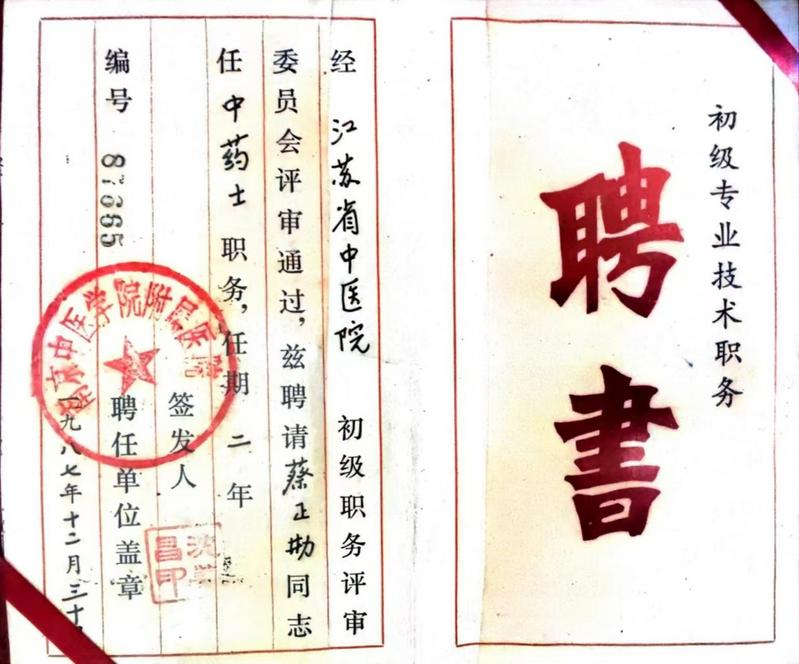 初级专业技术职务
聘书
经 江苏省中医院 初级职务评审
委员会评审通过，兹聘请蔡正同志
任中药士职务，任期二年
签发人
昌印
编号 87365
聘任单位盖章
一九八七年十二月三十
南京中医学院附属医院